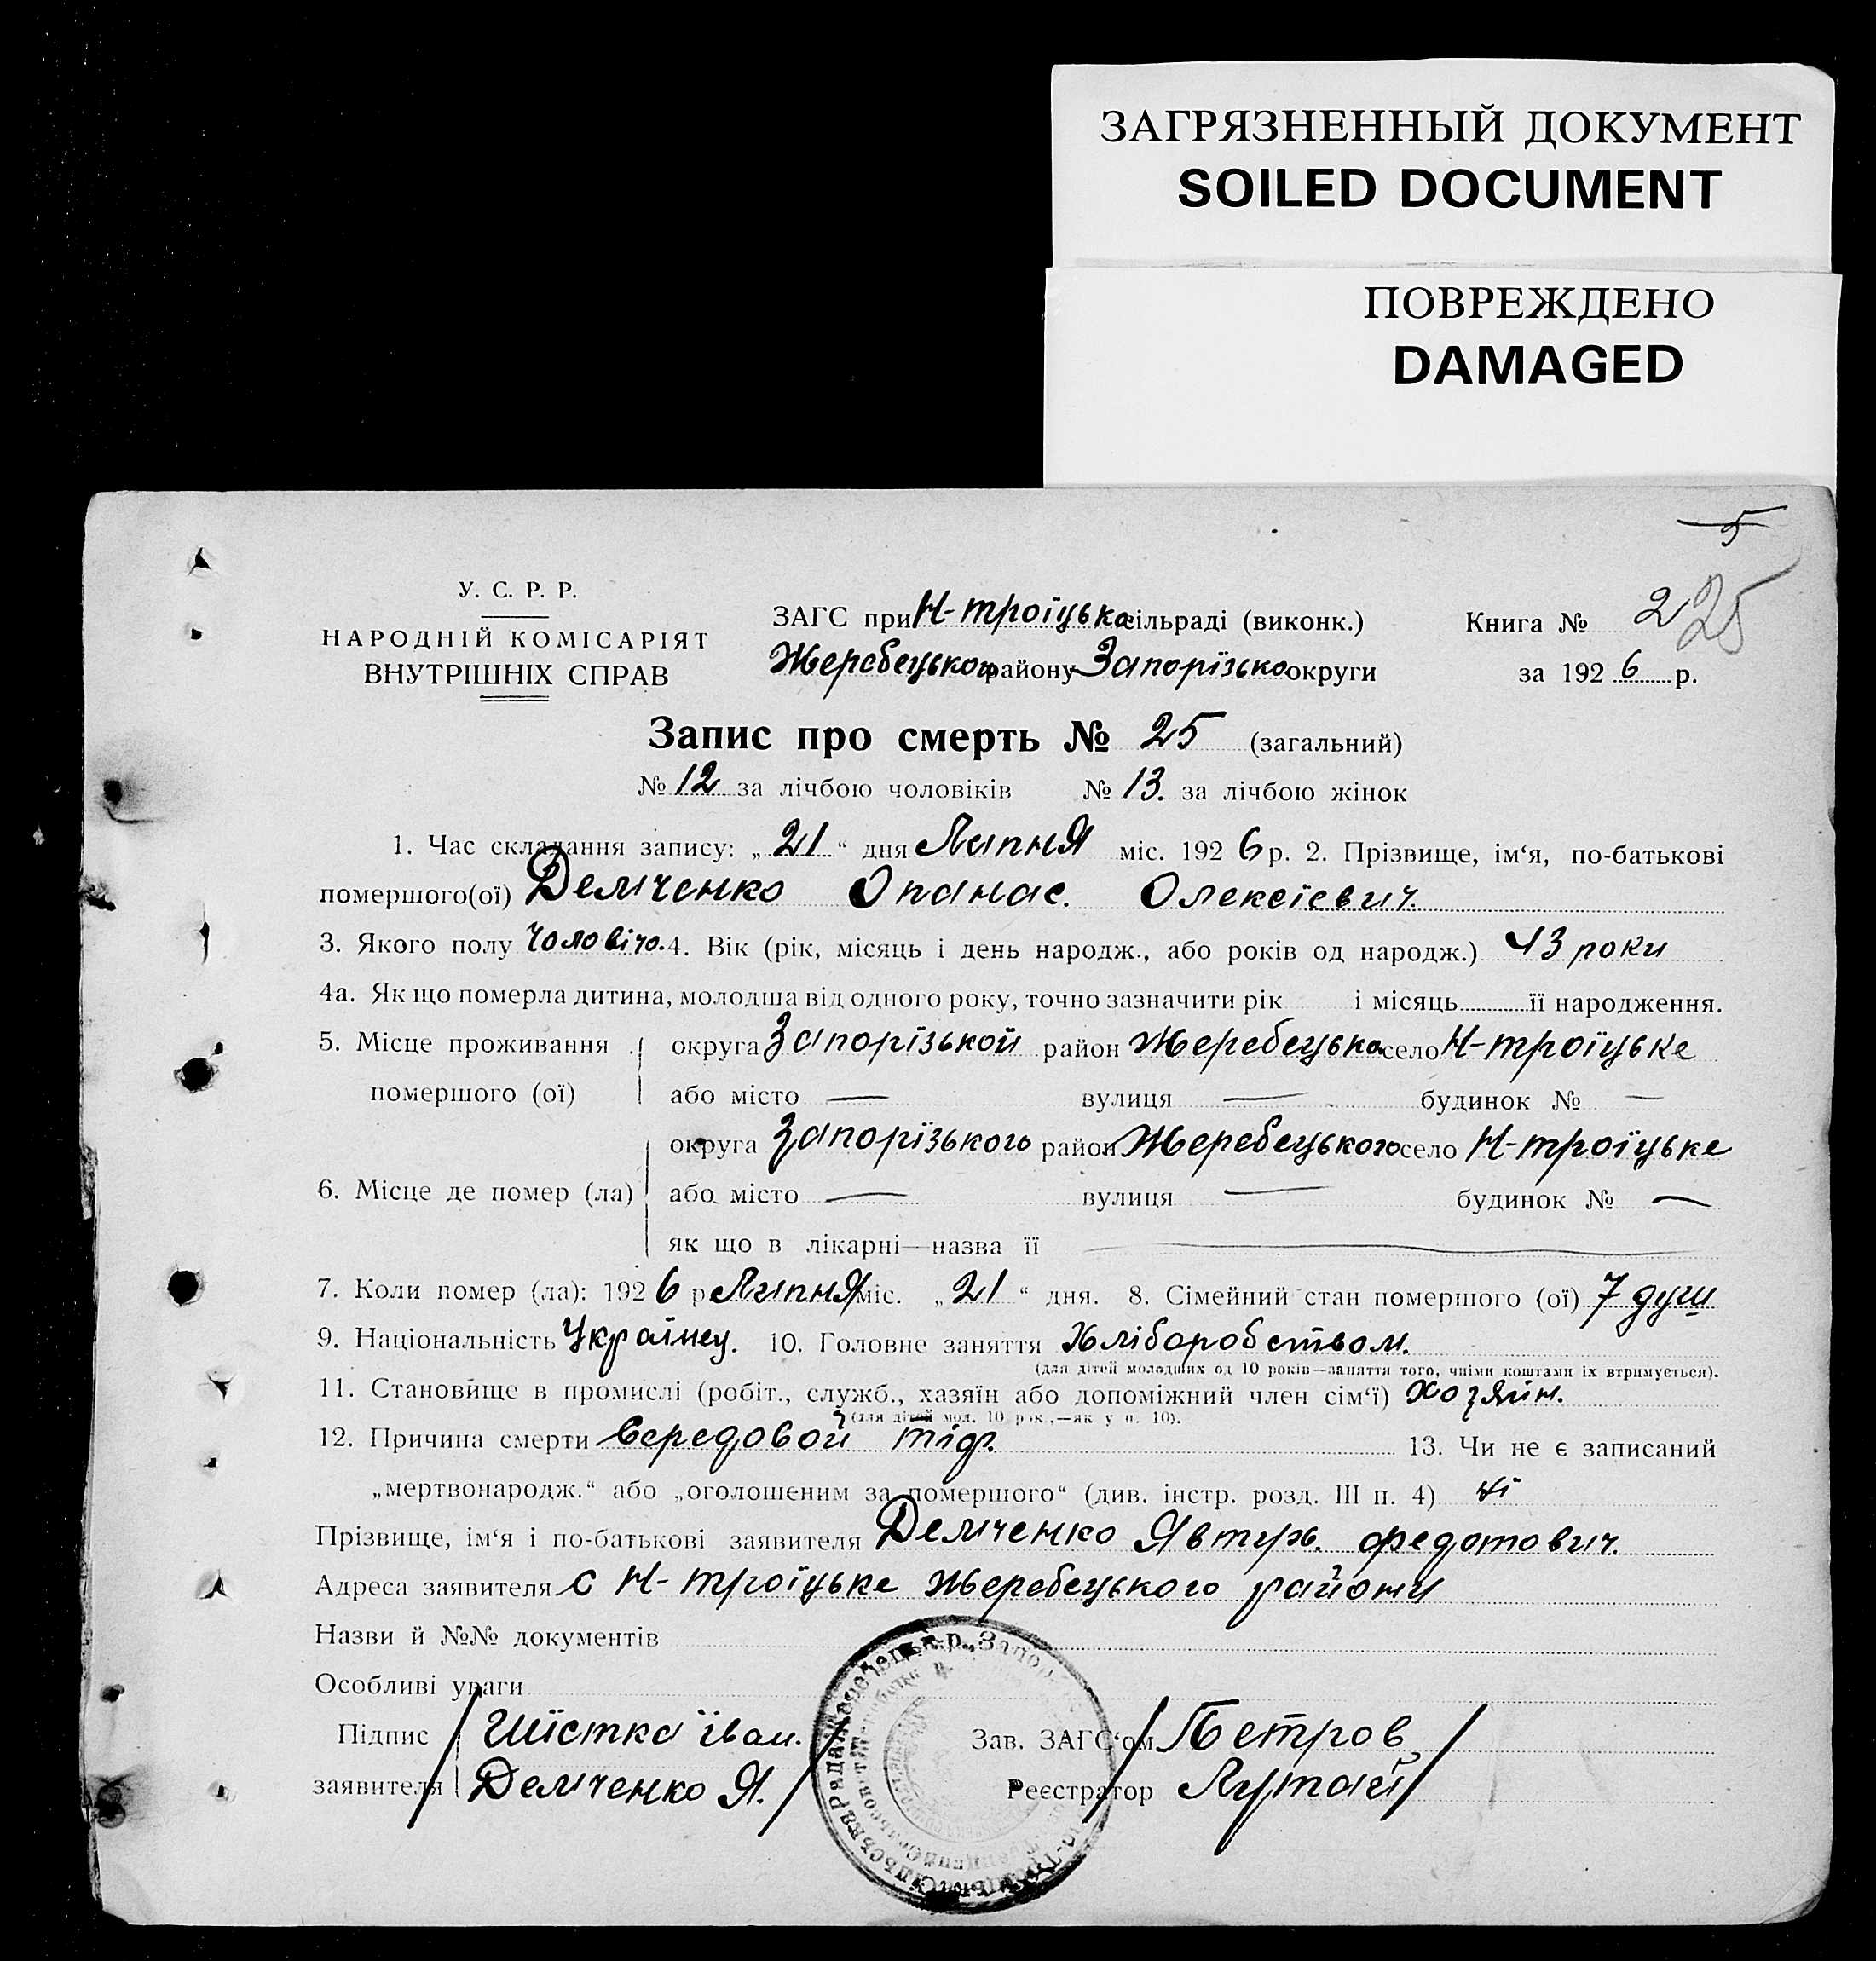 ЗАГРЯЗНЕННЫЙ ДОКУМЕНТ
SOILED DOCUMENT
ПОВРЕЖДЕНО
DAMAGED
5
25
У. С. Р. Р.
НАРОДНІЙ КОМІСАРІЯТ
ВНУТРІШНІХ СПРАВ
ЗАГС при Н-троїцька сільраді (виконк.)
Жеребецького району Запорізько округи
Книга № 2
за 1926 р.
Запис про смерть № 25 (загальний)
№ 12 за лічбою чоловіків № 13. за лічбою жінок
1. Час складання запису: „21“ дня Липня міс. 1926 р. 2. Прізвище, ім‘я, по-батькові
помершого(ої) Демченко Опанас. Олексієвич.
3. Якого полу чоловічо. 4. Вік (рік, місяць і день народж., або років од народж.) 43 роки
4а. Як що померла дитина, молодша від одного року, точно зазначити рік і місяць її народження.
5. Місце проживання округа Запорізькой район Жеребецько село Н-троїцьке
помершого (ої) або місто — вулиця — будинок № —
округа Запорїзького район Жеребецького село Н-троїцьке
6. Місце де помер (ла) або місто — вулиця — будинок № —
як що в лікарні—назва її —
7. Коли помер (ла): 1926 р Липня міс. „21“ дня. 8. Сімейний стан помершого (ої) 7 душ
9. Національність Українец. 10. Головне заняття Хліборобством.
(для дітей молодших од 10 років—заняття того, чиїми коштами їх втримується).
11. Становище в промислі (робіт., служб., хазяїн або допоміжний член сім‘ї) хозяин.
(для дітей мол. 10 рок.,—як у п. 10).
12. Причина смерти 13. Чи не є записаний
„мертвонародж.“ або „оголошеним за помершого“ (див. інстр. розд. III п. 4) ні
Прізвище, ім‘я і по-батькові заявителя Демченко Явтух. Федотович.
Адреса заявителя с Н-троїцьке Жеребецького району
Назви й №№ документів
Особливі уваги
Підпис / Шїстка їван. / Зав. ЗАГС‘ом / Петров /
заявителя / Демченко Я. / Реєстратор / Лутай /